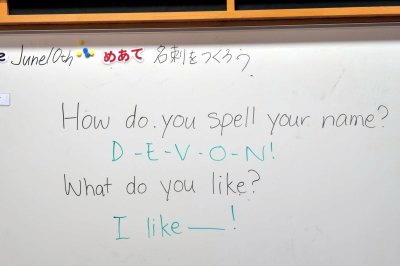 June10th めあて 名刺をつくろう.
How do you spell your name?
D-E-V-O-N!
What do you like?
I like __!